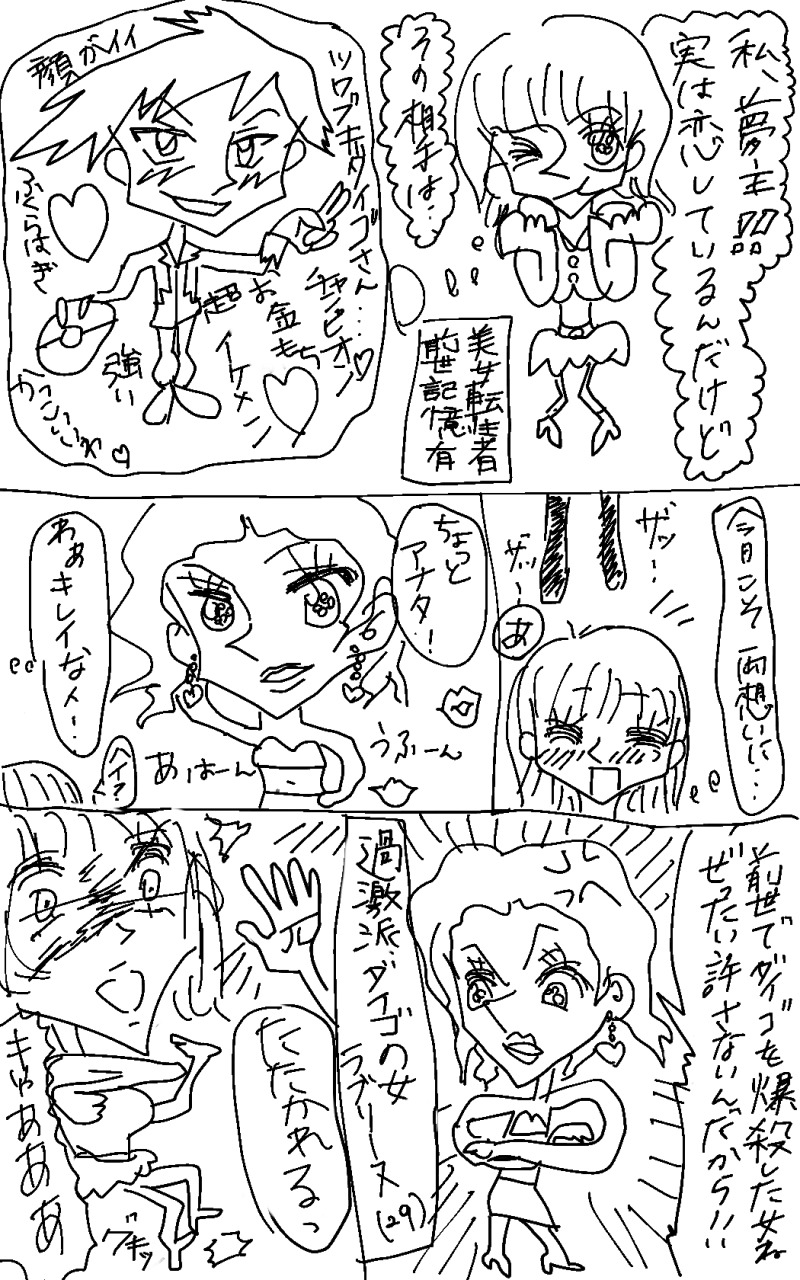 私、夢主
実は恋しているんだけど
その相手は…
美女転生者
前世記憶有
ツワブキダイゴさん…
チャンピオン♡
お金もち
超イケメン
顔がイイ
ふくらはぎ
強い
かっこいい♡
今日こそ両想いに…
ザッ…
ザッ…
あ
ちょっと
アナタ!
うふーん
あはーん
わぁ
キレイな人…
ヘイ?
前世でダイゴを爆殺した女ね
ぜったい許さないんだから!!
過激派ダイゴの女
ラブリーヌ(29)
たたかれるっ
きゃあああ
グキッ